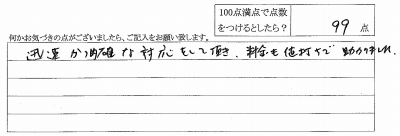 100点満点で点数
をつけるとしたら？
99 点
何かお気づきの点がございましたら、ご記入をお願い致します。
迅速かつ的確な対応をして頂き、料金も値打ちで助かりました。